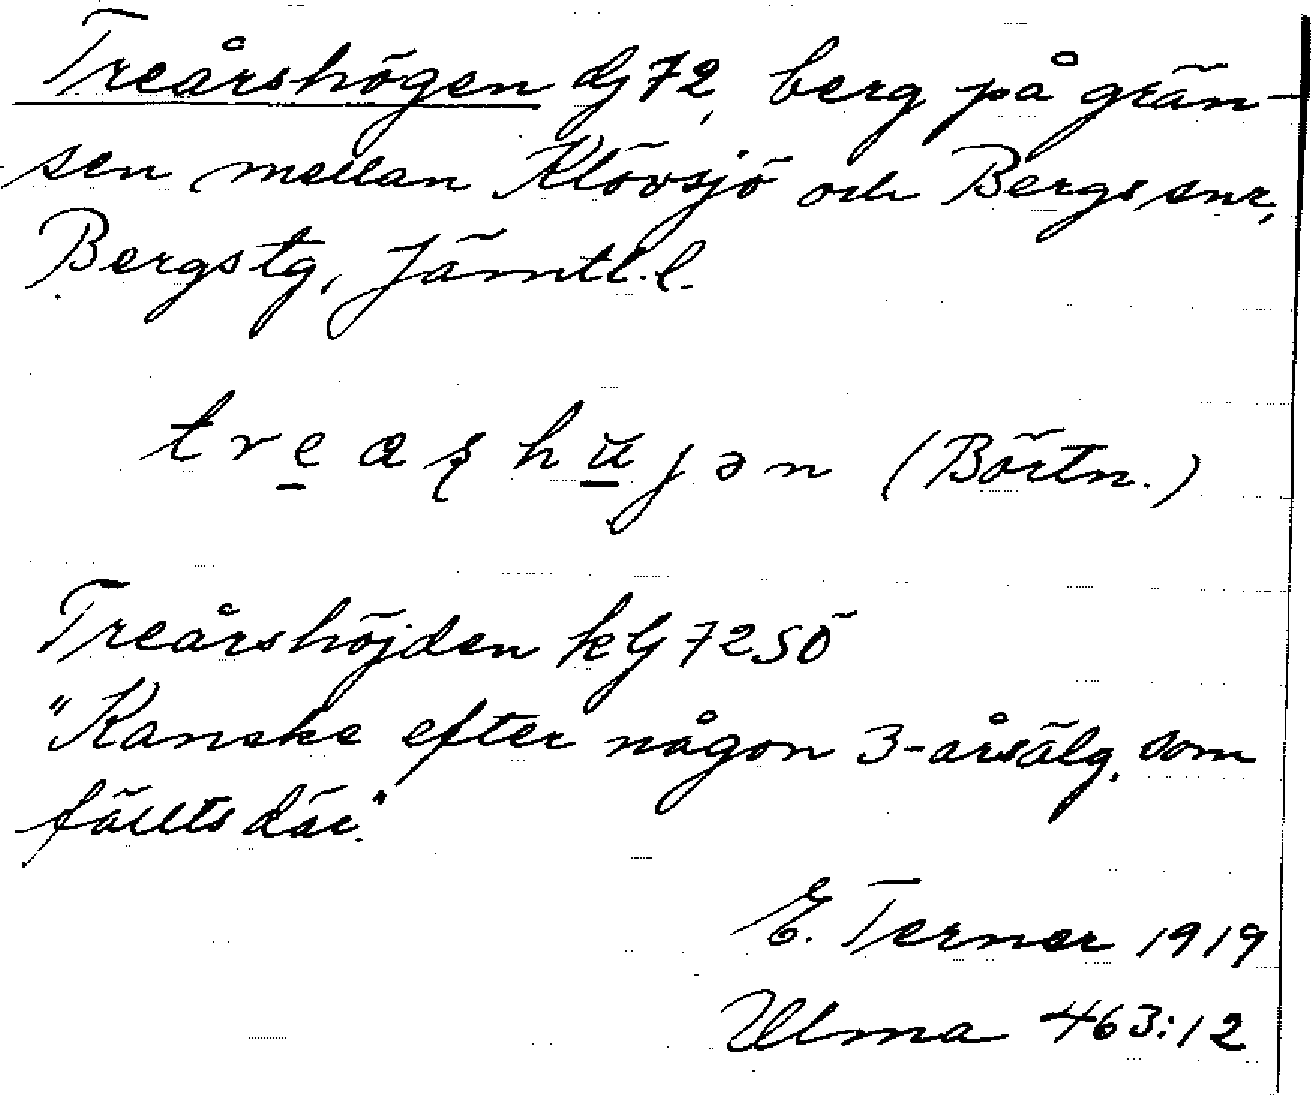 Treårshögen dj 72, berg på grän-
sen mellan Klövsjö och Bergs snr,
Bergs tg, Jämtl. l.
(Börtn.)
Treårshöjden kG 72 SÖ
"Kanske efter någon 3-årsälg, som
fällts där."
E. Terner 1919
Ulma 463:12